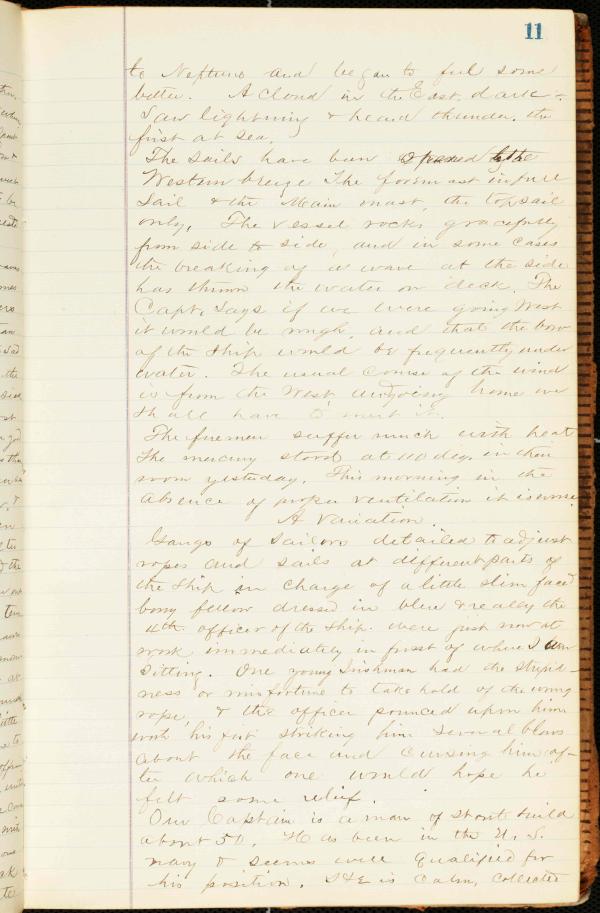 11
to Neptune and began to feel some
better. A cloud in the East, dark -
Saw lightning & heard thunder, the
first at sea.
The sails have been opened to the
Western breeze The foremast in full
Sail & the Main mast, the topsail
only. The vessel rocks gracefully
from side to side, and in some cases
the breaking of a wave at the side
has thrown the water on deck. The
Capt. says if we were going West
it would be rough, and that the bow
of the Ship would be frequently under
water. The usual course of the wind
is from the West, and going home we
shall have to meet it.
The firemen suffer much with heat
The mercury stood at 110 deg. in their
room yesterday. This morning in the
absence of proper ventilation it is worse
A Variation.
Gangs of Sailors detailed to adjust
ropes and sails at different parts of
the Ship in charge of a little slim faced
bony fellow dressed in blue & really the
4th officer of the Ship. were just now at
work immediately in front of where I am
Sitting. One young Irishman had the stupid-
ness or misfortune to take hold of the wrong
rope, & the officer pounced upon him
with his fist striking him several blows
about the face and cursing him af-
ter which one would hope he
felt some relief.
Our Captain is a man of stout build
about 50. Has been in the U. S.
navy & seems well qualified for
his position. He is calm, collected